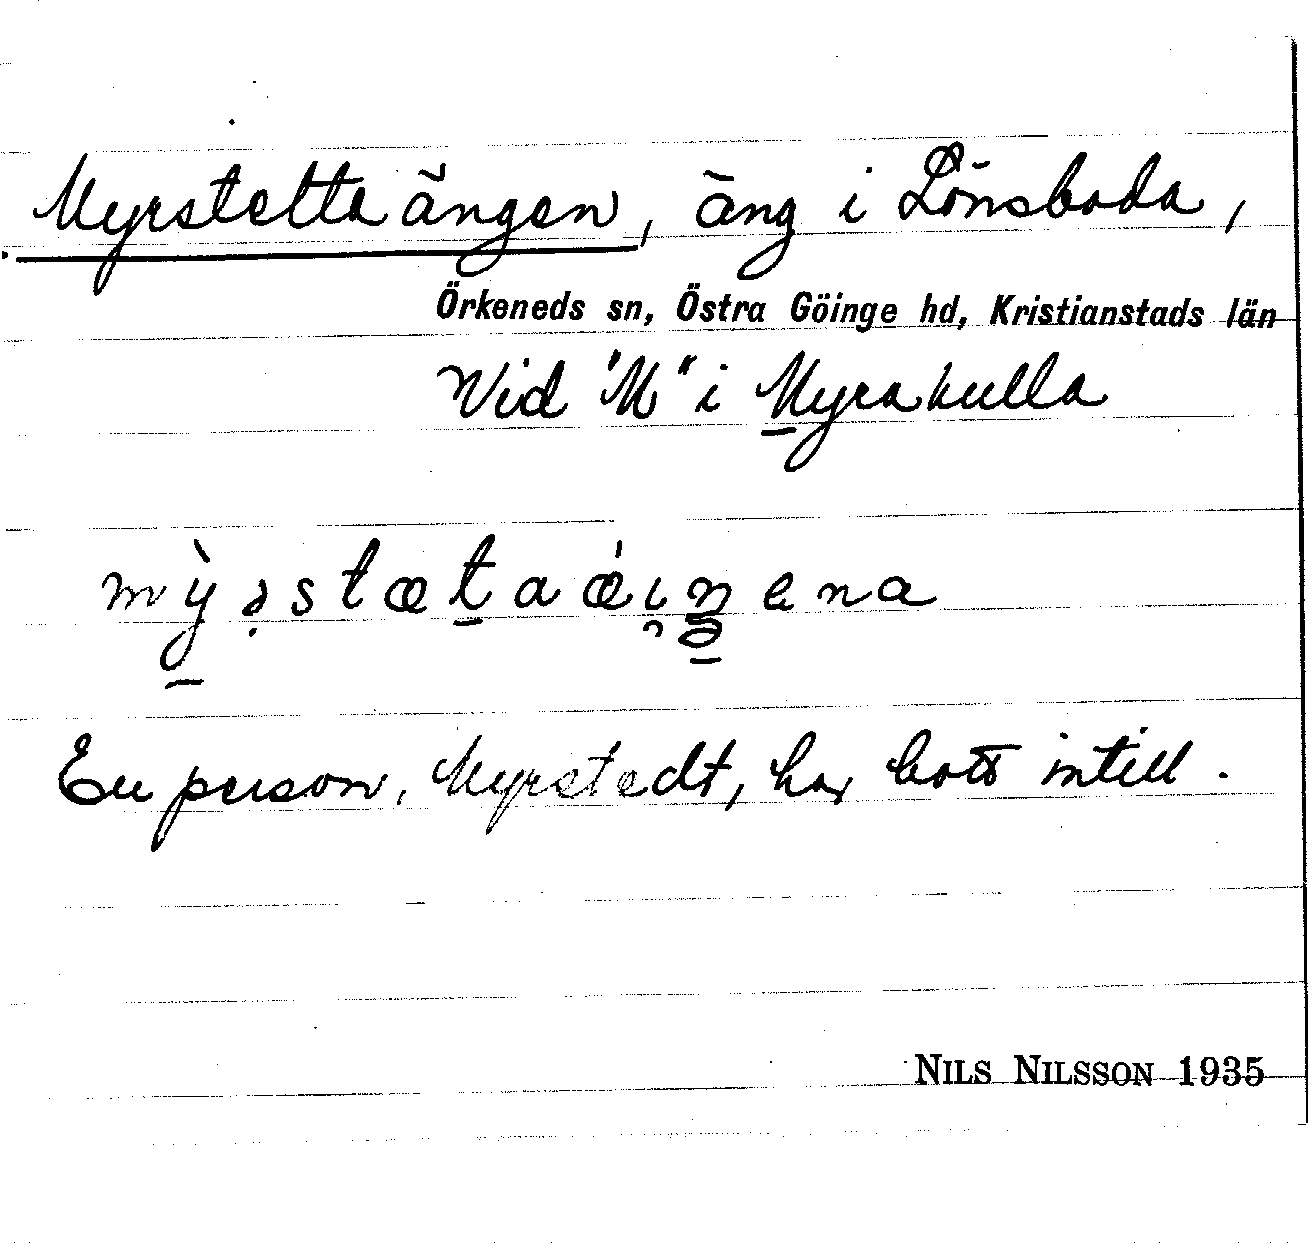 Myrstettaängen, äng i Lönsboda,
Örkeneds sn, Östra Göinge hd, Kristianstads län
Vid "M" i Myrakulla
mỳəstætaǽi̯ŋena
En person, Myrstedt, har bott intill.
NILS NILSSON 1935